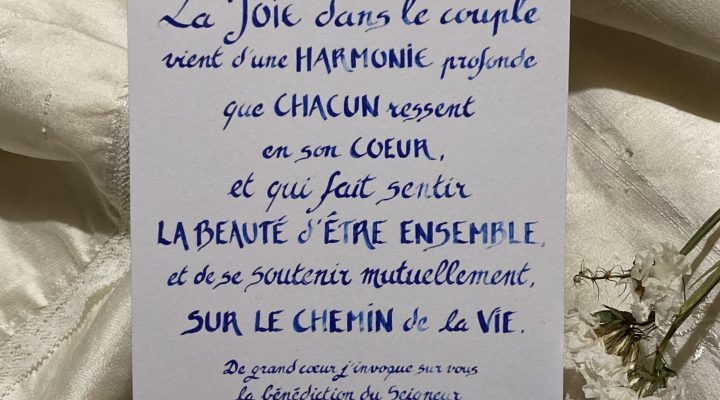 La JOIE dans le couple
vient d'une HARMONIE profonde
que CHACUN ressent
en son COEUR,
et qui fait sentir
LA BEAUTÉ d'ÊTRE ENSEMBLE,
et de se soutenir mutuellement,
SUR LE CHEMIN de la VIE.
De grand cœur j'invoque sur vous
la bénédiction du Seigneur